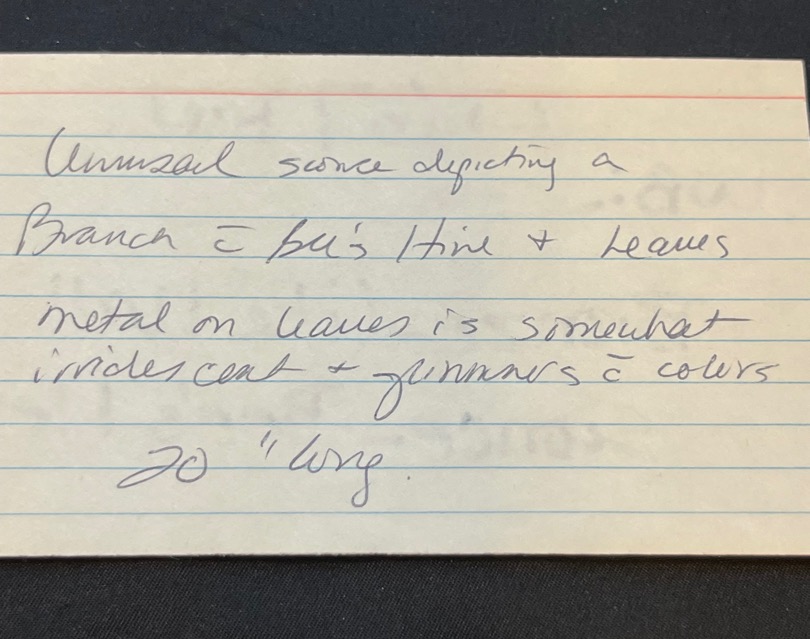 Unusual sconce depicting a
Branch c̄ bee's Hive + Leaves
metal on leaves is somewhat
irridescent + glimmers c̄ colors
20" long.